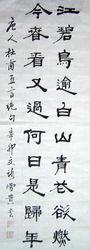 江碧鳥逾白山青花欲燃
今春看又過何日是歸年
唐人杜甫五言絶句辛卯